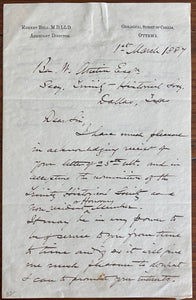 ROBERT BELL, M.D. LL.D.
ASSISTANT DIRECTOR
GEOLOGICAL SURVEY OF CANADA,
OTTAWA.
1st March 1887
Ben. W. Austin Esq
Secy. Trinity Historical Soc.
Dallas, Texas
Dear Sir,
I have much pleasure
in acknowledging receipt of
your letter of 25th ult. and in
accepting the nomination of the
Trinity Historical Society as a
Honorary
non resident member
It may be in my power to
be of service to you from time
to time and if so it will give
me much pleasure to do what
I can to promote your interests.